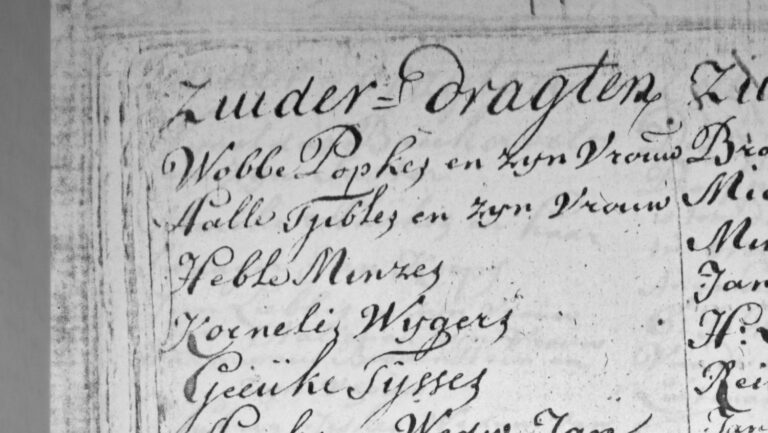 Zuider=dragten
Wobbe Popkes en zyn Vrouw
Halle Tjibles en zyn Vrouw
Heble Minzes
Kornelis Wygers
Geeuke Tysses
Wedw. Jan
Zu
Bro
Mic
Jan
H:
Rei
Jan